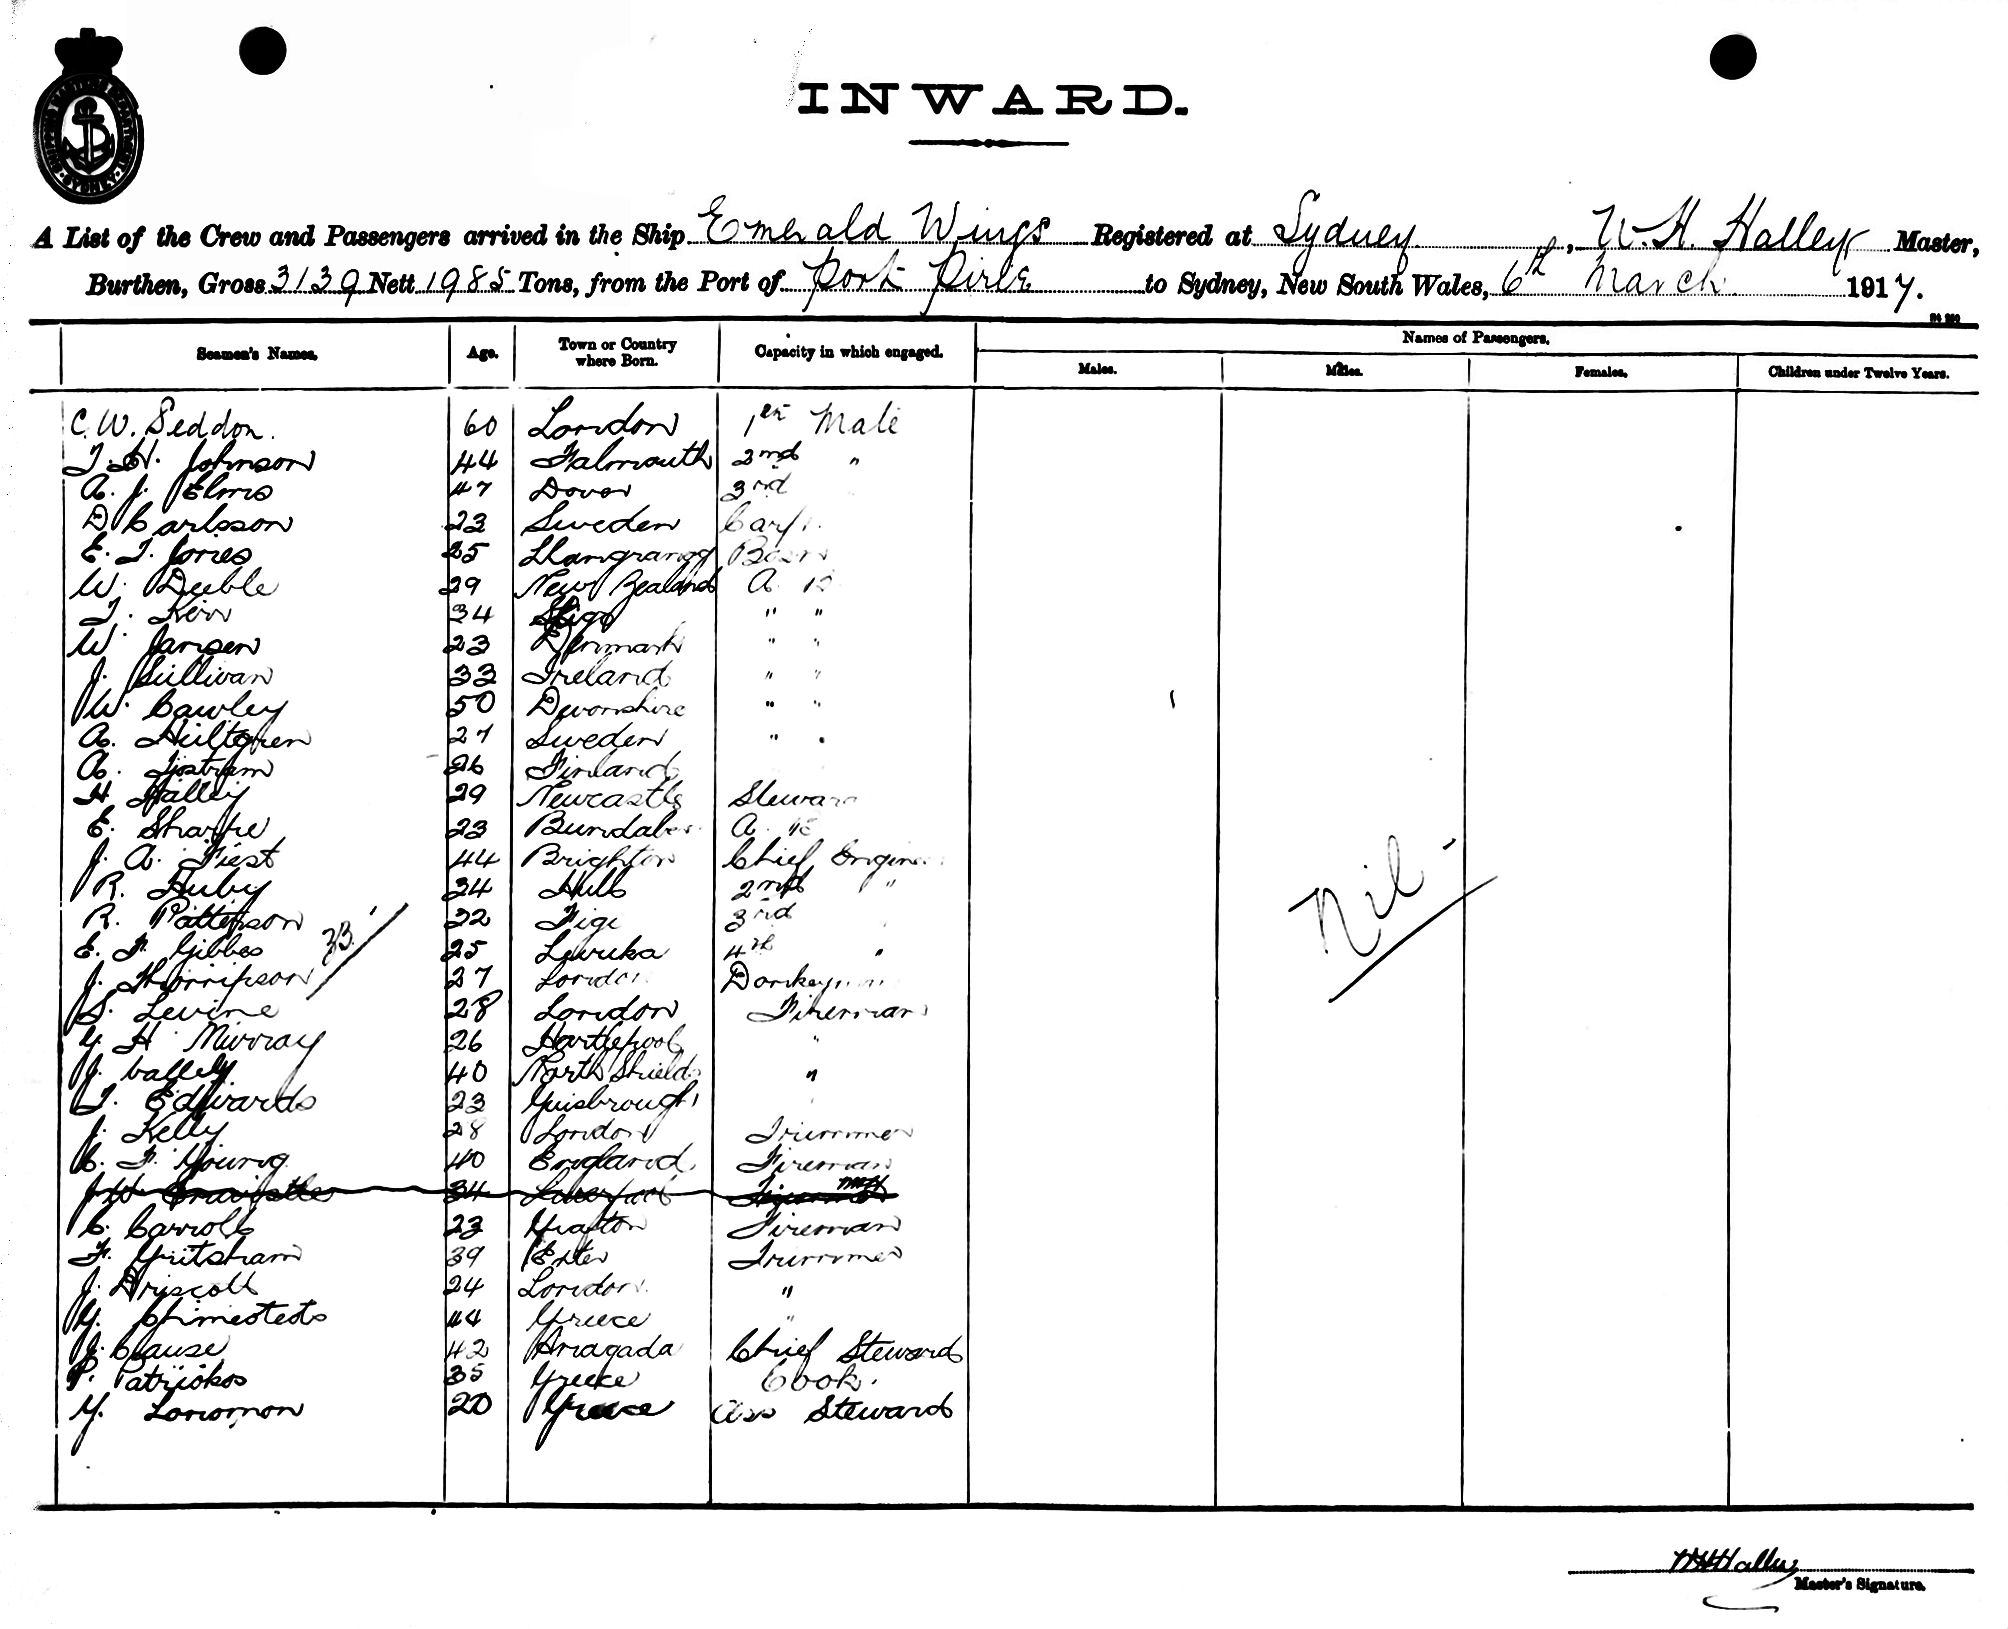 SHIPPING MASTER'S DEPARTMENT · SYDNEY ·
INWARD.
A List of the Crew and Passengers arrived in the Ship Emerald Wings Registered at Sydney, W. H. Halley Master,
Burthen, Gross 3139 Nett 1985 Tons, from the Port of Port Pirie to Sydney, New South Wales, 6th March 1917.
Names of Passengers.
Seamen's Names. Age. Town or Country where Born. Capacity in which engaged. Males. Males. Females. Children under Twelve Years.
C. W. Seddon. 60 London 1st Mate
T. H. Johnson 44 Falmouth 2nd "
A. J. Elms 47 Dover 3rd
D Carlsson 23 Sweden Carp
E. T. Jones 25 Bosn
W. Deeble 29 New Zealand A. B
T. Kerr 34 Sligo " "
W. Jansen 23 Denmark " "
J. Sullivan 33 Ireland " "
W. Cawley 50 Devonshire " "
A. Hultgren 27 Sweden " "
A. 26 Finland
H Halley 29 Newcastle Steward
E. Sharpe 23 Bundaber A. B
J. A. Fiest 44 Brighton Chief Engineer
R. Huby 34 Hull 2nd "
R. Patterson 22 Figi 3rd
E. F. Gibbes 25 Levuka 4th "
J. Thompson 27 London Donkeyman
33
S. Levine 28 London Fireman
G. H Murray 26 Hartlepool "
J. Callely 40 North Shields "
T. Edwards 23 Guisbrough
J. Kelly 28 London Trimmer
C. F. Young 40 England. Fireman
34 Liverpool
C. Carroll 23 Grafton Fireman
F. Gritsham 39 Exter Trimmer
J. Driscoll 24 London "
G. 44 Greece "
J. Cause 42 Chief Steward
P. Patriokos 35 Greece Cook.
G. Lonomon 20 Greece Ass Steward
Nil
W H Halley
Master's Signature.